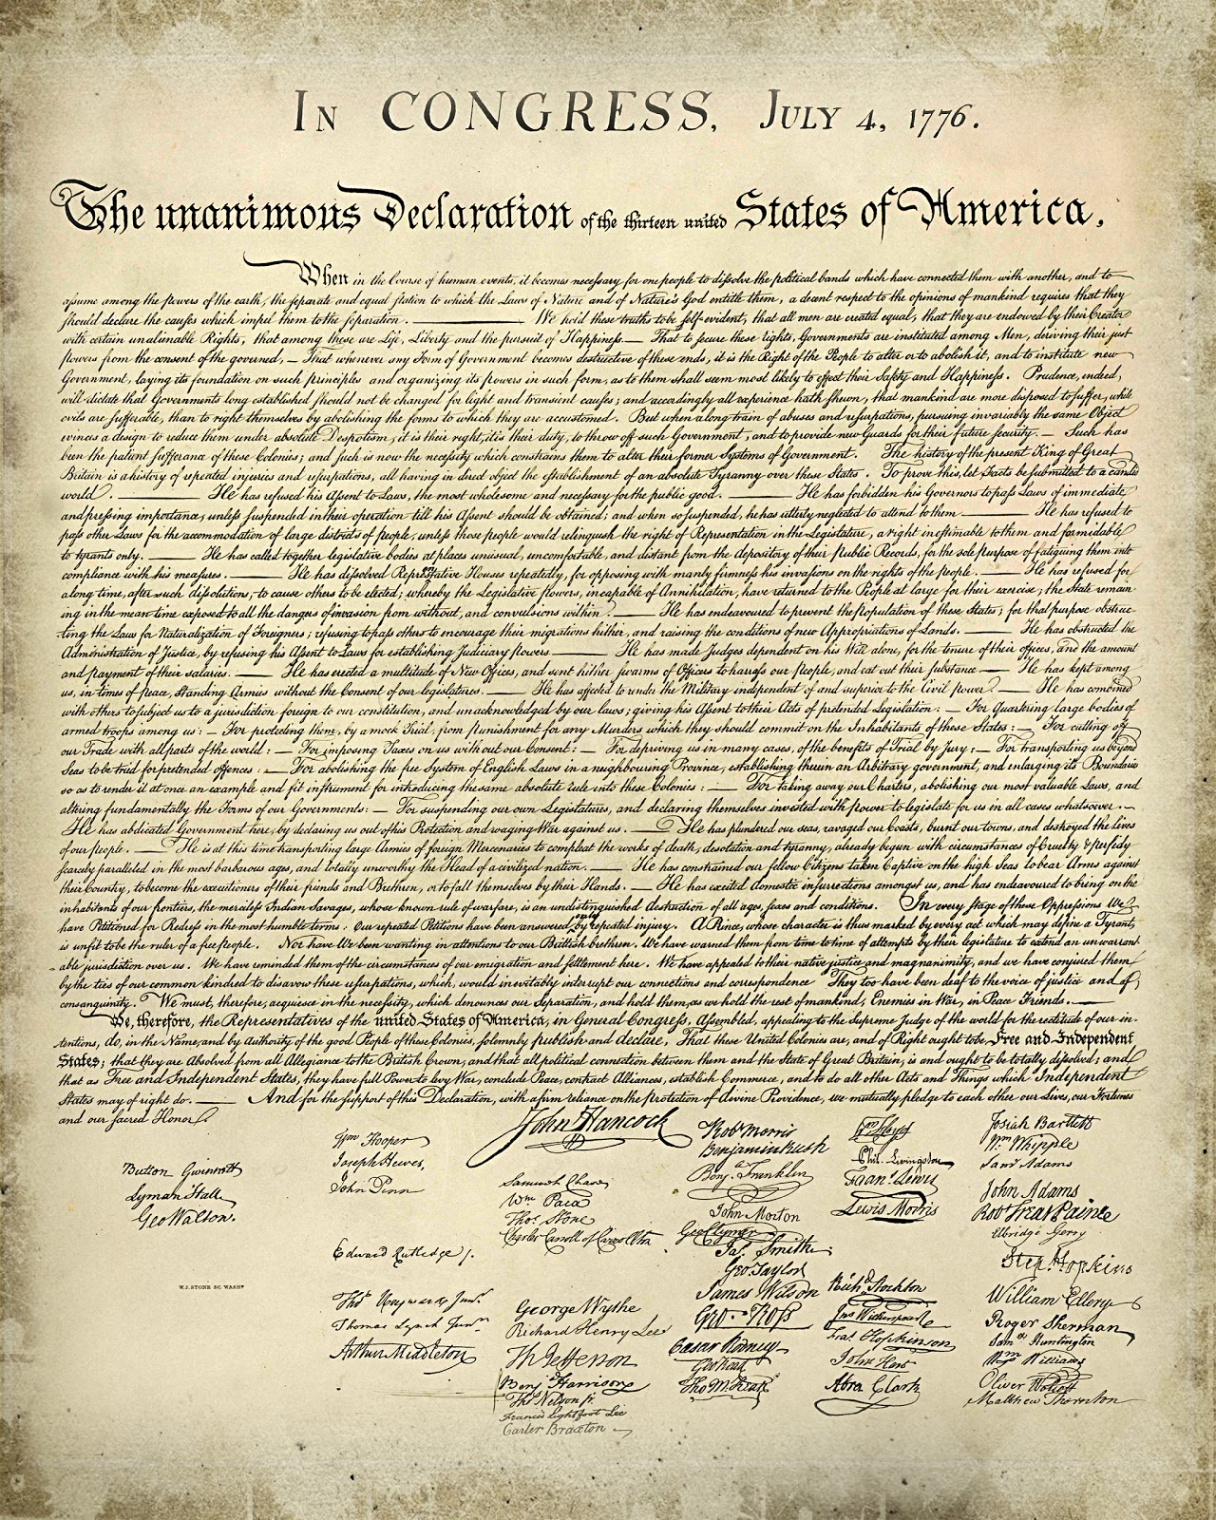 In CONGRESS, July 4, 1776.
The unanimous Declaration of the thirteen united States of America,
When in the Course of human events, it becomes necessary for one people to dissolve the political bands which have connected them with another, and to
assume among the powers of the earth, the separate and equal station to which the Laws of Nature and of Nature's God entitle them, a decent respect to the opinions of mankind requires that they
should declare the causes which impel them to the separation. ——— We hold these truths to be self-evident, that all men are created equal, that they are endowed by their Creator
with certain unalienable Rights, that among these are Life, Liberty and the pursuit of Happiness. — That to secure these rights, Governments are instituted among Men, deriving their just
powers from the consent of the governed, — That whenever any Form of Government becomes destructive of these ends, it is the Right of the People to alter or to abolish it, and to institute new
Government, laying its foundation on such principles and organizing its powers in such form, as to them shall seem most likely to effect their Safety and Happiness. Prudence, indeed,
will dictate that Governments long established should not be changed for light and transient causes; and accordingly all experience hath shewn, that mankind are more disposed to suffer, while
evils are sufferable, than to right themselves by abolishing the forms to which they are accustomed. But when a long train of abuses and usurpations, pursuing invariably the same Object
evinces a design to reduce them under absolute Despotism, it is their right, it is their duty, to throw off such Government, and to provide new Guards for their future security. — Such has
been the patient sufferance of these Colonies; and such is now the necessity which constrains them to alter their former Systems of Government. The history of the present King of Great
Britain is a history of repeated injuries and usurpations, all having in direct object the establishment of an absolute Tyranny over these States. To prove this, let Facts be submitted to a candid
world. ——— He has refused his Assent to Laws, the most wholesome and necessary for the public good. ——— He has forbidden his Governors to pass Laws of immediate
and pressing importance, unless suspended in their operation till his Assent should be obtained; and when so suspended, he has utterly neglected to attend to them. ——— He has refused to
pass other Laws for the accommodation of large districts of people, unless those people would relinquish the right of Representation in the Legislature, a right inestimable to them and formidable
to tyrants only. ——— He has called together legislative bodies at places unusual, uncomfortable, and distant from the depository of their Public Records, for the sole purpose of fatiguing them into
compliance with his measures. ——— He has dissolved Representative Houses repeatedly, for opposing with manly firmness his invasions on the rights of the people. ——— He has refused for
a long time, after such dissolutions, to cause others to be elected; whereby the Legislative powers, incapable of Annihilation, have returned to the People at large for their exercise; the State remain
ing in the mean time exposed to all the dangers of invasion from without, and convulsions within. ——— He has endeavoured to prevent the population of these States; for that purpose obstruc
ting the Laws for Naturalization of Foreigners; refusing to pass others to encourage their migrations hither, and raising the conditions of new Appropriations of Lands. ——— He has obstructed the
Administration of Justice, by refusing his Assent to Laws for establishing Judiciary powers. ——— He has made Judges dependent on his Will alone, for the tenure of their offices, and the amount
and payment of their salaries. ——— He has erected a multitude of New Offices, and sent hither swarms of Officers to harrass our people, and eat out their substance. ——— He has kept among
us, in times of peace, Standing Armies without the Consent of our legislatures. ——— He has affected to render the Military independent of and superior to the Civil power. ——— He has combined
with others to subject us to a jurisdiction foreign to our constitution, and unacknowledged by our laws; giving his Assent to their Acts of pretended Legislation: — For Quartering large bodies of
armed troops among us: — For protecting them, by a mock Trial, from punishment for any Murders which they should commit on the Inhabitants of these States: — For cutting off
our Trade with all parts of the world: — For imposing Taxes on us without our Consent: — For depriving us in many cases, of the benefits of Trial by Jury: — For transporting us beyond
Seas to be tried for pretended offences: — For abolishing the free System of English Laws in a neighbouring Province, establishing therein an Arbitrary government, and enlarging its Boundaries
so as to render it at once an example and fit instrument for introducing the same absolute rule into these Colonies: — For taking away our Charters, abolishing our most valuable Laws, and
altering fundamentally the Forms of our Governments: — For suspending our own Legislatures, and declaring themselves invested with power to legislate for us in all cases whatsoever. —
He has abdicated Government here, by declaring us out of his Protection and waging War against us. ——— He has plundered our seas, ravaged our Coasts, burnt our towns, and destroyed the lives
of our people. ——— He is at this time transporting large Armies of foreign Mercenaries to compleat the works of death, desolation and tyranny, already begun with circumstances of Cruelty & perfidy
scarcely paralleled in the most barbarous ages, and totally unworthy the Head of a civilized nation. ——— He has constrained our fellow Citizens taken Captive on the high Seas to bear Arms against
their Country, to become the executioners of their friends and Brethren, or to fall themselves by their Hands. ——— He has excited domestic insurrections amongst us, and has endeavoured to bring on the
inhabitants of our frontiers, the merciless Indian Savages, whose known rule of warfare, is an undistinguished destruction of all ages, sexes and conditions. In every stage of these Oppressions We
have Petitioned for Redress in the most humble terms: Our repeated Petitions have been answered only by repeated injury. A Prince, whose character is thus marked by every act which may define a Tyrant,
is unfit to be the ruler of a free people. Nor have We been wanting in attentions to our Brittish brethren. We have warned them from time to time of attempts by their legislature to extend an unwarrant
able jurisdiction over us. We have reminded them of the circumstances of our emigration and settlement here. We have appealed to their native justice and magnanimity, and we have conjured them
by the ties of our common kindred to disavow these usurpations, which, would inevitably interrupt our connections and correspondence. They too have been deaf to the voice of justice and of
consanguinity. We must, therefore, acquiesce in the necessity, which denounces our Separation, and hold them, as we hold the rest of mankind, Enemies in War, in Peace Friends. ———
We, therefore, the Representatives of the united States of America, in General Congress, Assembled, appealing to the Supreme Judge of the world for the rectitude of our in-
tentions, do, in the Name, and by Authority of the good People of these Colonies, solemnly publish and declare, That these United Colonies are, and of Right ought to be Free and Independent
States; that they are Absolved from all Allegiance to the British Crown, and that all political connection between them and the State of Great Britain, is and ought to be totally dissolved; and
that as Free and Independent States, they have full Power to levy War, conclude Peace, contract Alliances, establish Commerce, and to do all other Acts and Things which Independent
States may of right do. ——— And for the support of this Declaration, with a firm reliance on the protection of divine Providence, we mutually pledge to each other our Lives, our Fortunes
and our sacred Honor.
Button Gwinnett
Lyman Hall
Geo Walton.
W.J. STONE SC. WASHN
Wm Hooper
Joseph Hewes,
John Penn
Edward Rutledge /.
Thos Heyward Junr.
Thomas Lynch Junr.
Arthur Middleton
John Hancock
Samuel Chase
Wm. Paca
Thos. Stone
Charles Carroll of Carrollton
George Wythe
Richard Henry Lee
Th Jefferson
Benja Harrison
Thos Nelson jr.
Francis Lightfoot Lee
Carter Braxton
Robt Morris
Benjamin Rush
Benja. Franklin
John Morton
Geo Clymer
Jas. Smith
Geo. Taylor
James Wilson
Geo. Ross
Caesar Rodney
Geo Read
Tho M:Kean
Wm Floyd
Phil. Livingston
Frans. Lewis
Lewis Morris
Richd. Stockton
Jno Witherspoon
Fras. Hopkinson
John Hart
Abra Clark
Josiah Bartlett
Wm. Whipple
Saml Adams
John Adams
Robt Treat Paine
Elbridge Gerry
Step. Hopkins
William Ellery
Roger Sherman
Saml Huntington
Wm Williams
Oliver Wolcott
Matthew Thornton